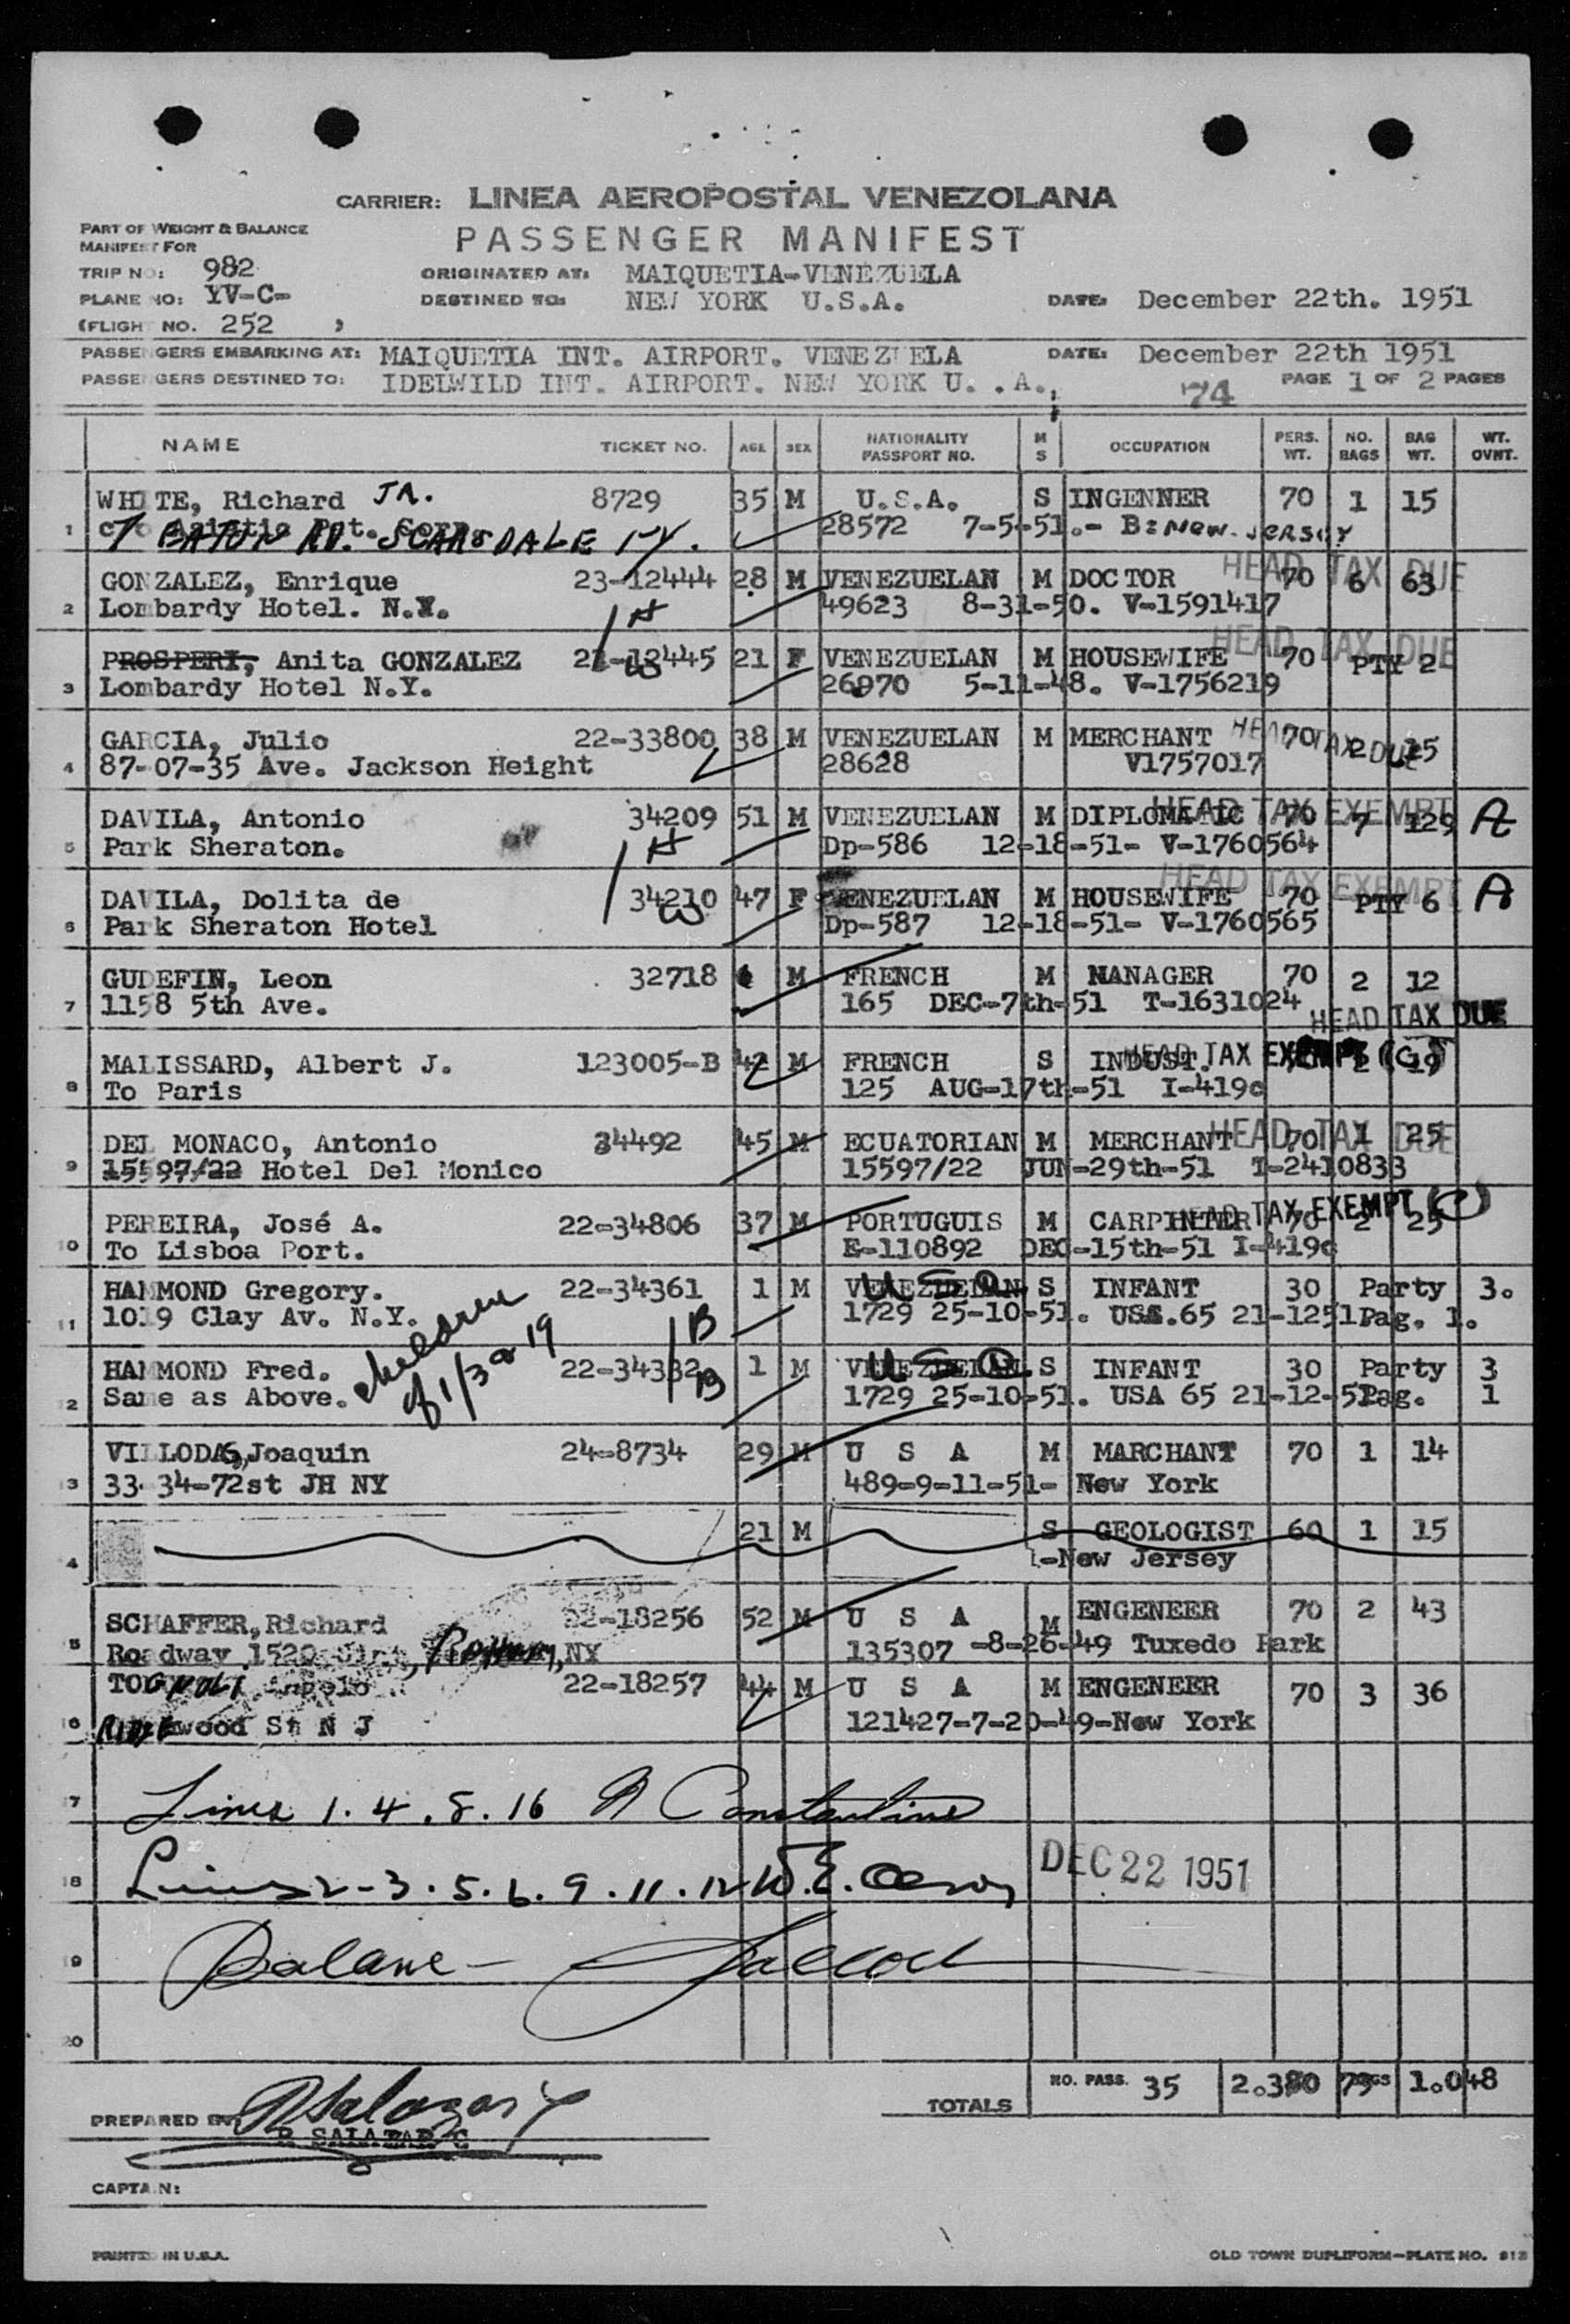 CARRIER: LINEA AEROPOSTAL VENEZOLANA
PART OF WEIGHT & BALANCE
MANIFEST FOR
PASSENGER MANIFEST
TRIP NO: 982
ORIGINATED AT: MAIQUETIA-VENEZUELA
PLANE NO: YV-C-
DESTINED TO: NEW YORK U.S.A.
DATE: December 22th. 1951
(FLIGHT NO. 252 )
PASSENGERS EMBARKING AT: MAIQUETIA INT. AIRPORT. VENEZUELA
DATE: December 22th 1951
PASSENGERS DESTINED TO: IDELWILD INT. AIRPORT. NEW YORK U. .A.,
74
PAGE 1 OF 2 PAGES
NAME TICKET NO. AGE SEX NATIONALITY PASSPORT NO. M S OCCUPATION PERS. WT. NO. BAGS BAG WT. WT. OVNT.
WHITE, Richard JR. 8729 35 M U.S.A. S INGENNER 70 1 15
1 7 EATON RD. SCARSDALE NY. 28572 7-5-51.- B: New. JERSEY
GONZALEZ, Enrique 23-12444 28 M VENEZUELAN M DOCTOR 70 6 63 HEAD TAX DUE
2 Lombardy Hotel. N.Y. H 49623 8-31-50. V-1591417
PROSPERI, Anita GONZALEZ 12445 21 F VENEZUELAN M HOUSEWIFE 70 PTY 2 HEAD TAX DUE
3 Lombardy Hotel N.Y. W 26970 5-11-48. V-1756219
GARCIA, Julio 22-33800 38 M VENEZUELAN M MERCHANT 70 2 15 HEAD TAX DUE
4 87-07-35 Ave. Jackson Height 28628 V1757017
DAVILA, Antonio 34209 51 M VENEZUELAN M DIPLOMATIC 70 7 129 A HEAD TAX EXEMPT
5 Park Sheraton. H Dp-586 12-18-51- V-1760564
DAVILA, Dolita de 34210 47 F VENEZUELAN M HOUSEWIFE 70 PTY 6 A HEAD TAX EXEMPT
6 Park Sheraton Hotel W Dp-587 12-18-51- V-1760565
GUDEFIN, Leon 32718 M FRENCH M MANAGER 70 2 12
7 1158 5th Ave. 165 DEC-7th-51 T-1631024 HEAD TAX DUE
MALISSARD, Albert J. 123005-B 42 M FRENCH S INDUST. HEAD TAX EXEMPT (C) 19
8 To Paris 125 AUG-17th-51 I-419c
DEL MONACO, Antonio 34492 45 M ECUATORIAN M MERCHANT 70 1 25 HEAD TAX DUE
9 15597/22 Hotel Del Monico 15597/22 JUN-29th-51 I-2410833
PEREIRA, José A. 22-34806 37 M PORTUGUIS M CARPINTER 70 2 25 HEAD TAX EXEMPT (C)
10 To Lisboa Port. E-110892 DEC-15th-51 I-419c
HAMMOND Gregory. 22-34361 1 M VENEZUELAN U S A S INFANT 30 Party 3.
11 1019 Clay Av. N.Y. B 1729 25-10-51. USA.65 21-1251 Pag. 1.
children
of 1/3 a 19
HAMMOND Fred. 22-34332 1 M VENEZUELAN U S A S INFANT 30 Party 3
12 Same as Above. B 1729 25-10-51. USA 65 21-12-51 Pag. 1
VILLODAS, Joaquin 24-8734 29 M U S A M MARCHANT 70 1 14
13 33-34-72st JH NY 489-9-11-51- New York
21 M S GEOLOGIST 60 1 15
4 -New Jersey
SCHAFFER, Richard 22-18256 52 M U S A M ENGENEER 70 2 43
5 Roadway 1520 NY 135307 -8-26-49 Tuxedo Park
TOGNOLI Angelo 22-18257 44 M U S A M ENGENEER 70 3 36
16 Ridgewood St N J 121427-7-20-49-New York
17 Lines 1. 4. 8. 16 A Constantine
18 Lines 2-3. 5. 6. 9. 11. 12 W.E. DEC 22 1951
19 Balance -
20
TOTALS NO. PASS. 35 2.380 75 BAGS 1.048
PREPARED BY:
R SALAZAR G
CAPTAIN:
PRINTED IN U.S.A.
OLD TOWN DUPLIFORM-PLATE NO. 912